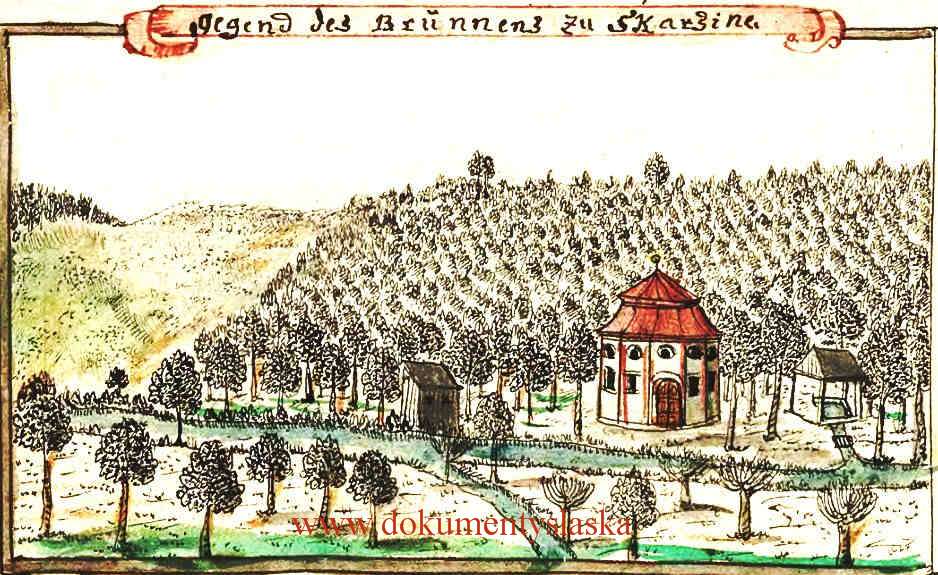 Gegend des Brünnens zu Skarsine.
www.dokumentyslaska